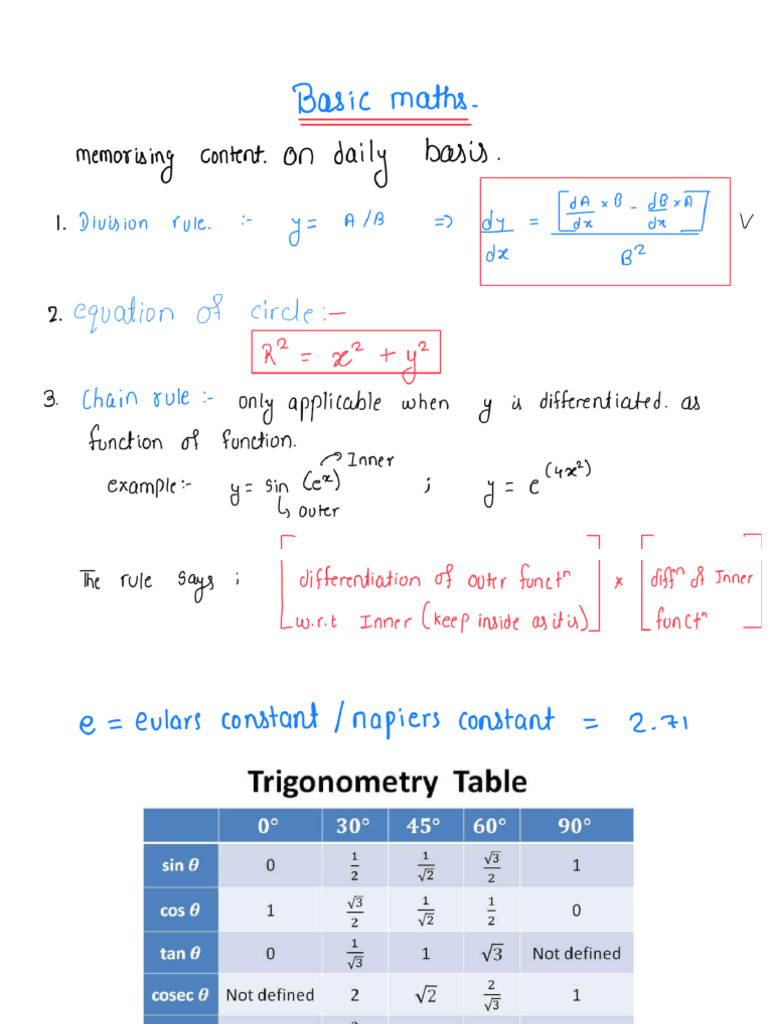 Basic maths.
memorising content. on daily basis.
1. Division rule. :- y = A/B => dy/dx = [dA/dx × B - dB/dx × A] / B² V
2. equation of circle:-
R² = x² + y²
3. Chain rule :- only applicable when y is differentiated. as
function of function.
Inner
example:- y = sin (eˣ) ; y = e^(4x²)
outer
The rule says ; [differentiation of outer functⁿ × [diffⁿ of Inner
w.r.t Inner (keep inside as it is)] functⁿ]
e = eulars constant / napiers constant = 2.71
Trigonometry Table
0° 30° 45° 60° 90°
sin θ 0 1/2 1/√2 √3/2 1
cos θ 1 √3/2 1/√2 1/2 0
tan θ 0 1/√3 1 √3 Not defined
cosec θ Not defined 2 √2 2/√3 1